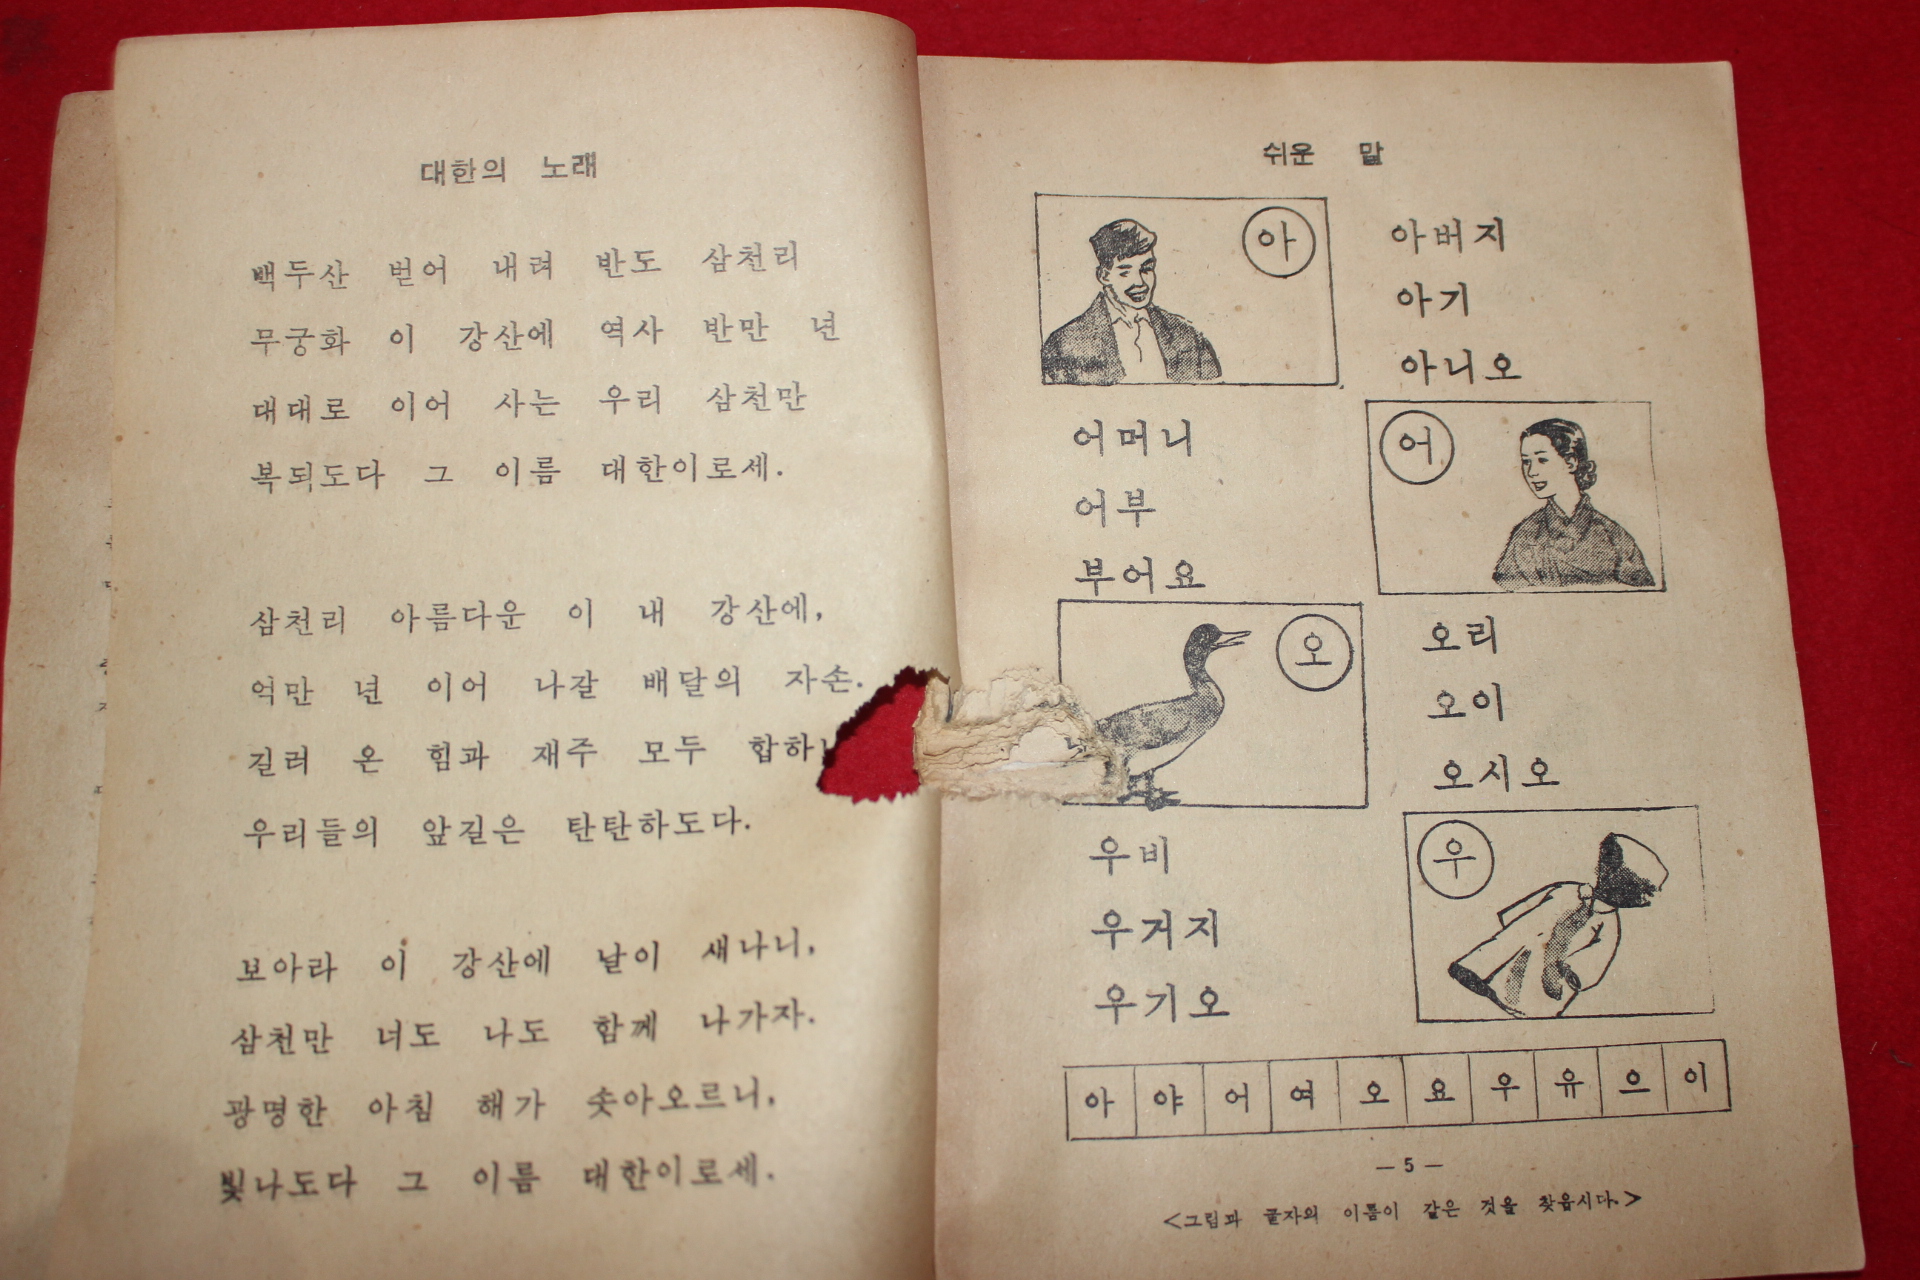 대한의 노래
백두산 벋어 내려 반도 삼천리
무궁화 이 강산에 역사 반만 년
대대로 이어 사는 우리 삼천만
복되도다 그 이름 대한이로세.
삼천리 아름다운 이 내 강산에,
억만 년 이어 나갈 배달의 자손.
길러 온 힘과 재주 모두 합하
우리들의 앞길은 탄탄하도다.
보아라 이 강산에 날이 새나니,
삼천만 너도 나도 함께 나가자.
광명한 아침 해가 솟아오르니,
빛나도다 그 이름 대한이로세.
쉬운 말
아
아버지
아기
아니오
어
어머니
어부
부어요
오
오리
오이
오시오
우
우비
우거지
우기오
아 야 어 여 오 요 우 유 으 이
— 5 —
<그림과 글자의 이름이 같은 것을 찾읍시다.>